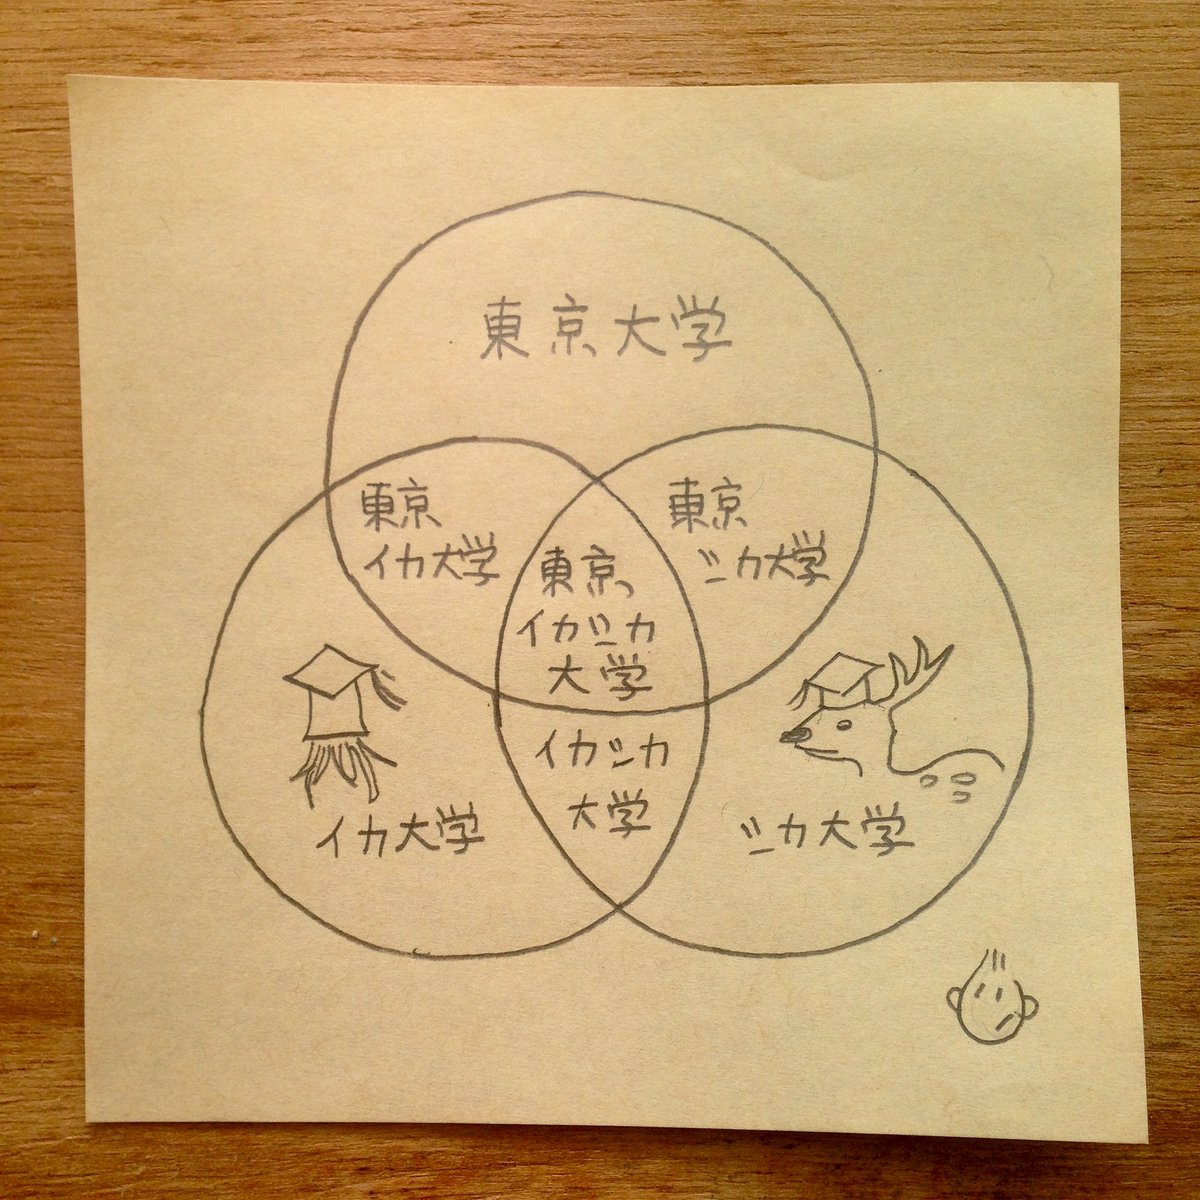 東京大学
東京
イカ大学
東京
シカ大学
東京
イカシカ
大学
イカシカ
大学
イカ大学
シカ大学